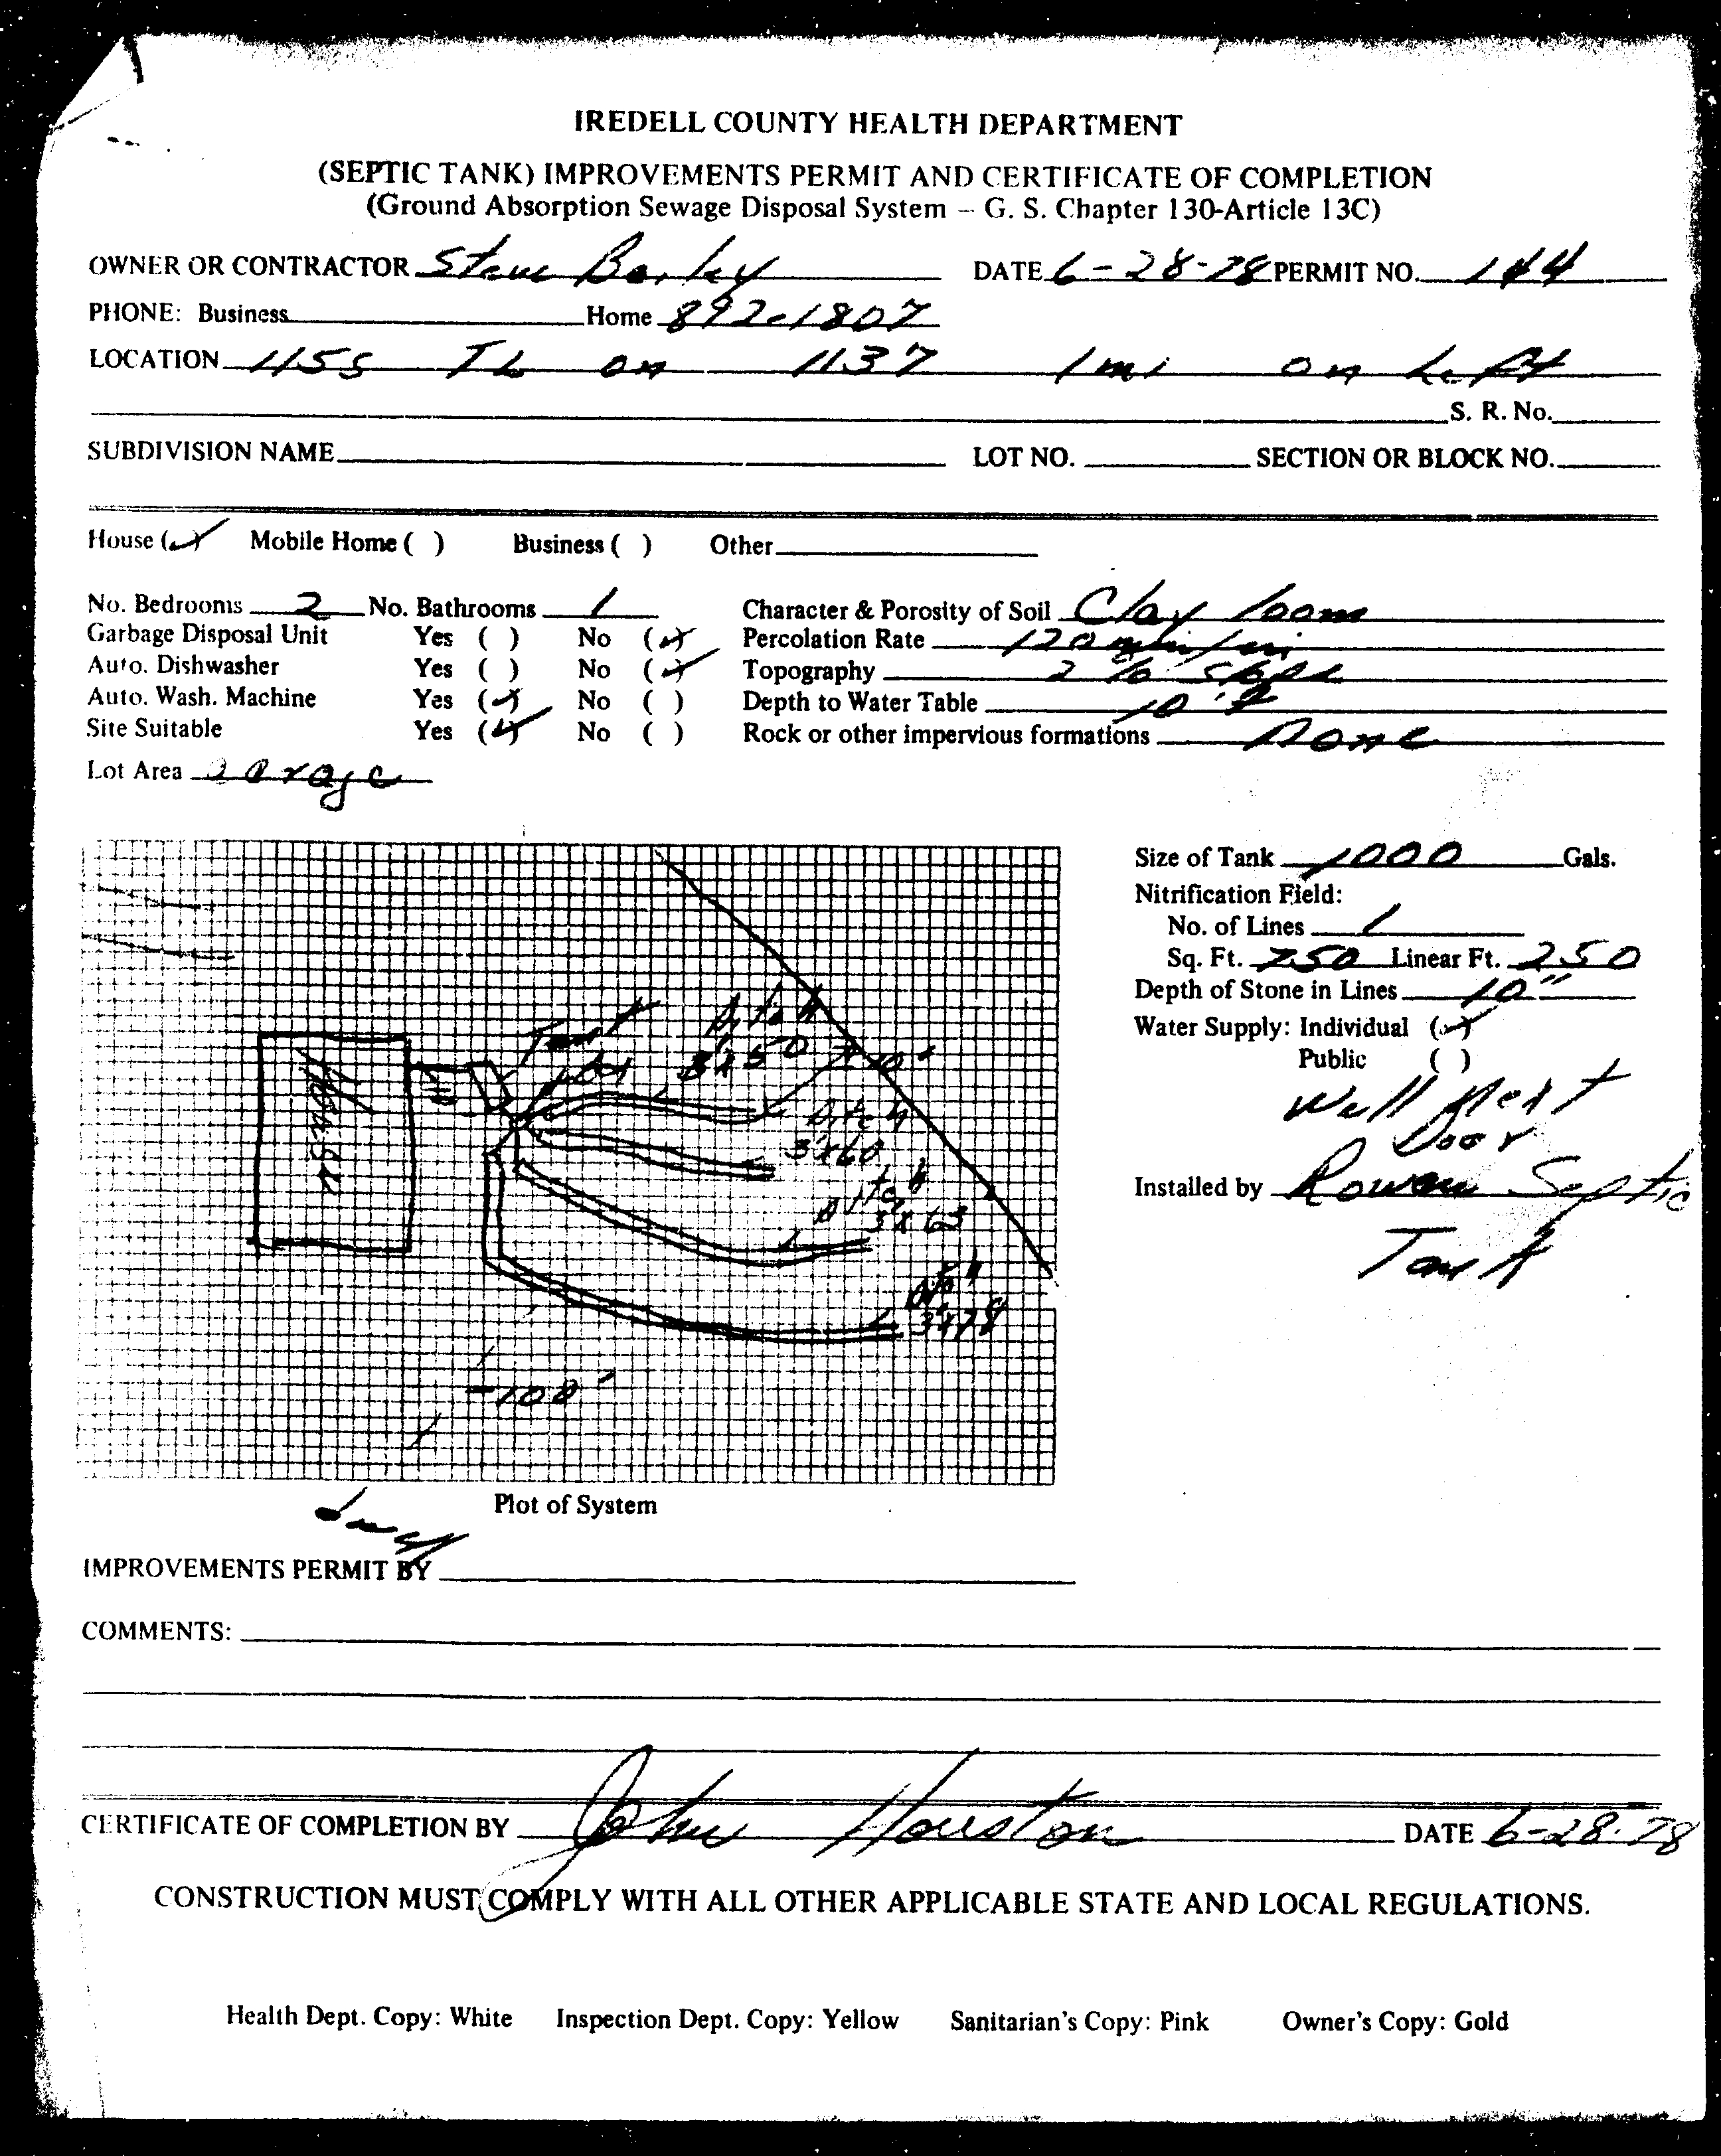 IREDELL COUNTY HEALTH DEPARTMENT
(SEPTIC TANK) IMPROVEMENTS PERMIT AND CERTIFICATE OF COMPLETION
(Ground Absorption Sewage Disposal System – G. S. Chapter 130-Article 13C)
OWNER OR CONTRACTOR Steve DATE 6-28-78 PERMIT NO. 144
PHONE: Business Home 892-1807
LOCATION 1155 TL on 1137 1 mi on Left
S. R. No.
SUBDIVISION NAME LOT NO. SECTION OR BLOCK NO.
House (✓) Mobile Home ( ) Business ( ) Other
No. Bedrooms 2 No. Bathrooms 1 Character & Porosity of Soil Clay loam
Garbage Disposal Unit Yes ( ) No (✓) Percolation Rate 120 min/in
Auto. Dishwasher Yes ( ) No (✓) Topography 2 % Slope
Auto. Wash. Machine Yes (✓) No ( ) Depth to Water Table 10'
Site Suitable Yes (✓) No ( ) Rock or other impervious formations none
Lot Area
Size of Tank 1000 Gals.
Nitrification Field:
No. of Lines 1
Sq. Ft. 750 Linear Ft. 250
Depth of Stone in Lines 10"
Water Supply: Individual (✓)
Public ( )
Well Next
Door
Installed by Rowan Septic
Tank
House
Tank
Box
Ditch
3'x50
10'
Ditch
3'x60
Ditch
3'x63
Ditch
3'x78
100'
Plot of System
IMPROVEMENTS PERMIT BY
COMMENTS:
CERTIFICATE OF COMPLETION BY John Houston DATE 6-28-78
CONSTRUCTION MUST COMPLY WITH ALL OTHER APPLICABLE STATE AND LOCAL REGULATIONS.
Health Dept. Copy: White Inspection Dept. Copy: Yellow Sanitarian's Copy: Pink Owner's Copy: Gold